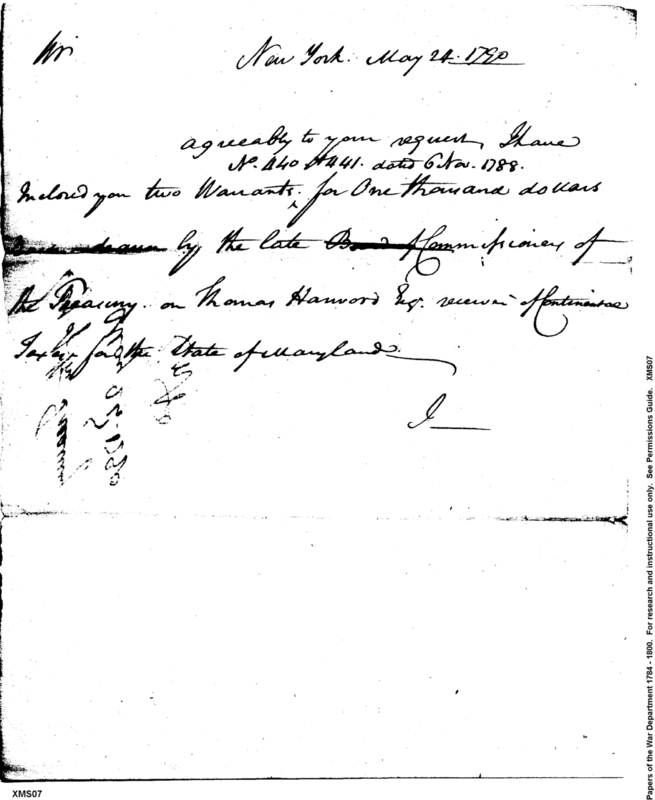 Sir
New York. May 24. 1790
agreeably to your request, I have
No. 440 & 441. dated 6 Nov. 1788.
Inclosed you two Warrants ‸ for One thousand dollars
drawn by the late Board of Commissioners of
the Treasury on Thomas Harwood Esq. receiver of Continental
Taxes for the State of Maryland.
I
XMS07
Papers of the War Department 1784 - 1800. For research and instructional use only. See Permissions Guide. XMS07